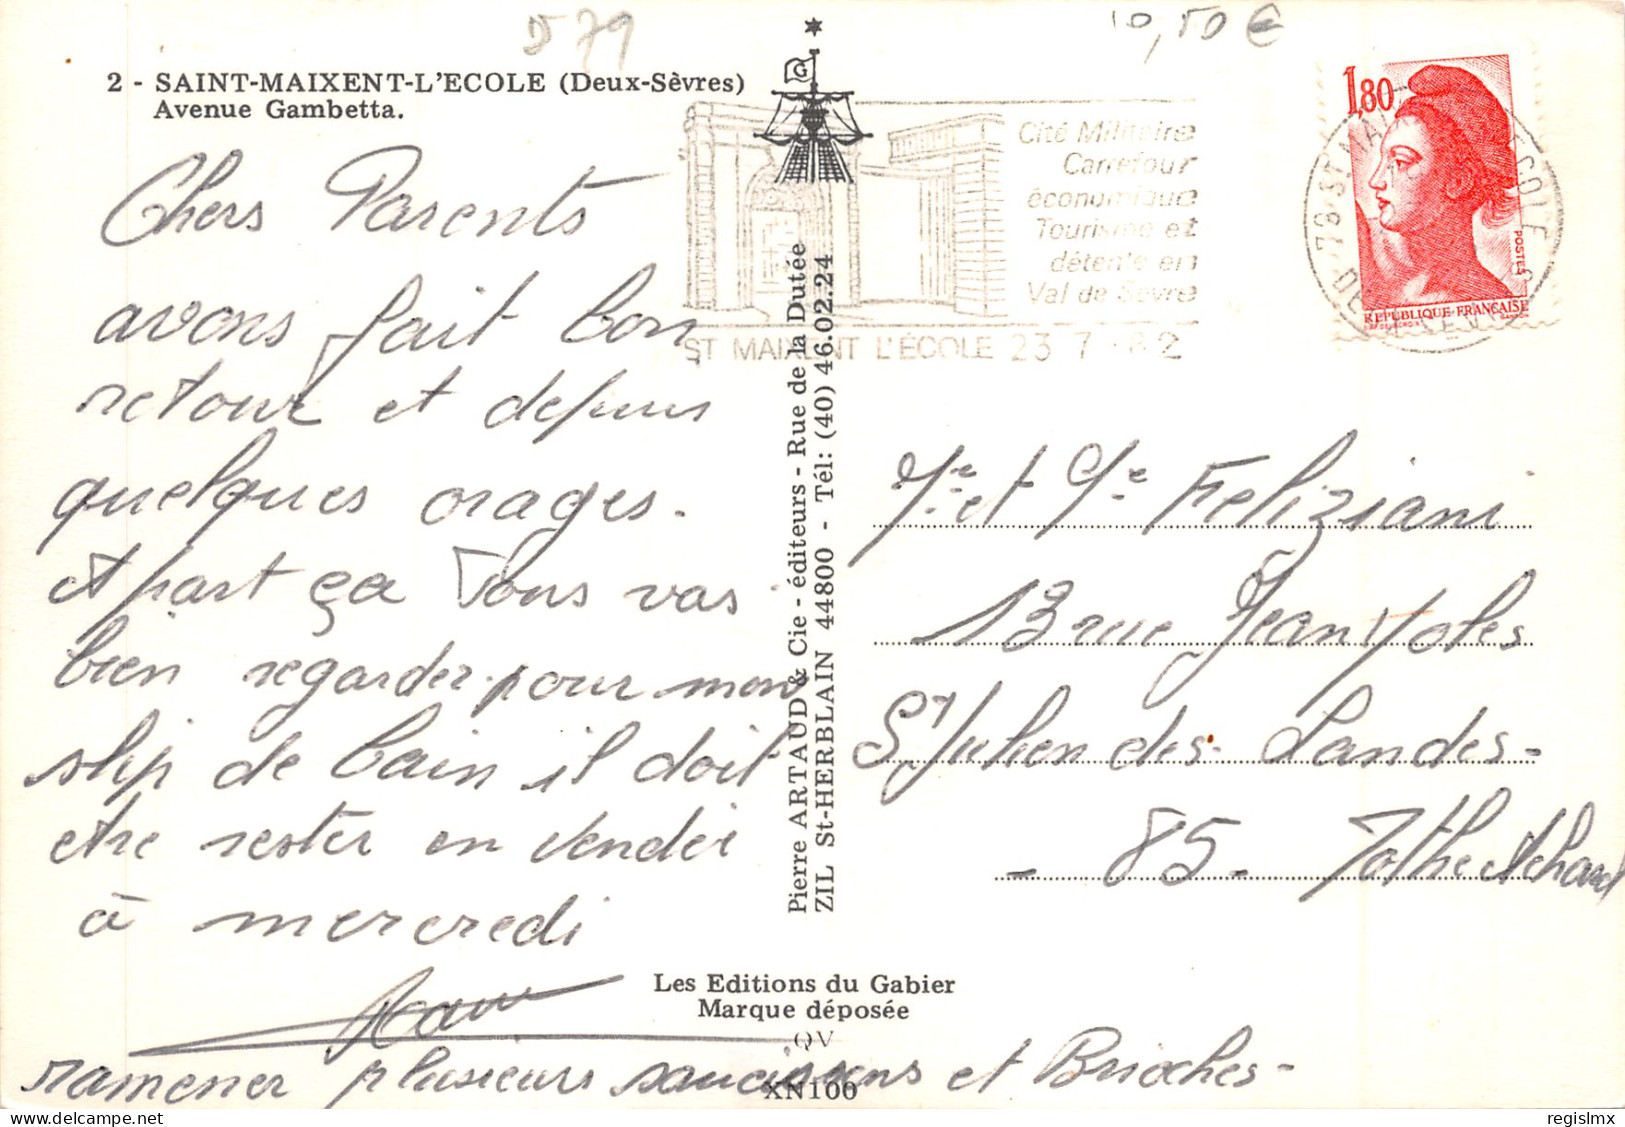 D79
10,50€
2 - SAINT-MAIXENT-L'ECOLE (Deux-Sèvres)
Avenue Gambetta.
Chers Parents
avons fait bon
retour et depuis
quelques orages.
A part ça Tous vas
bien regarder pour mon
slip de bain il doit
etre rester en Vendée
à mercredi
ramener plusieurs saucissons et Brioches-
G
Pierre ARTAUD & Cie - éditeurs - Rue de la Dutée
ZIL St-HERBLAIN 44800 - Tél: (40) 46.02.24
Les Editions du Gabier
Marque déposée
QV
XN100
Cité Militaire
Carrefour
économique
Tourisme et
détente en
Val de Sèvre
ST MAIXENT L'ECOLE 23 7 - 82
1,80
POSTES
REPUBLIQUE-FRANÇAISE
et Feliziani
13 rue Jean Yoles
St Julien des Landes-
- 85 - Mothe Achard
regislmx